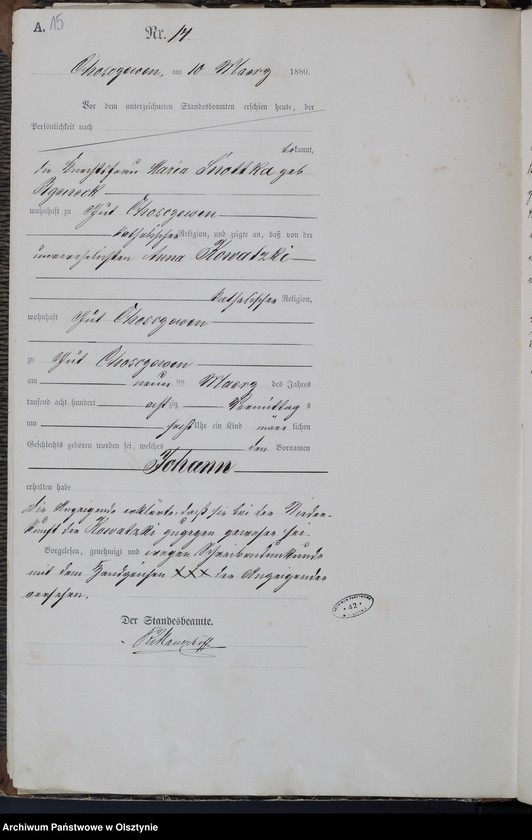 A. 15
Nr. 14.
am 10 Maerz 1880.
Vor dem unterzeichneten Standesbeamten erschien heute, der
Persönlichkeit nach
bekannt,
die Knechtsfrau Maria geb
wohnhaft zu Gut
katholischer Religion, und zeigte an, daß von der
unverehelichten Anna Kowatzki
katholischer Religion,
wohnhaft Gut
zu Gut
am neun ten Maerz des Jahres
tausend acht hundert acht zig Vormittag s
um sechs Uhr ein Kind männ lichen
Geschlechts geboren worden sei, welches den Vornamen
Johann
erhalten habe
Die Anzeigende erklärte, daß sie bei der Nieder-
kunft der Kowatzki zugegen gewesen sei.
Vorgelesen, genehmigt und wegen Schreibensunkunde
mit dem Handzeichen XXX der Anzeigenden
versehen.
Der Standesbeamte.
42
Archiwum Państwowe w Olsztynie